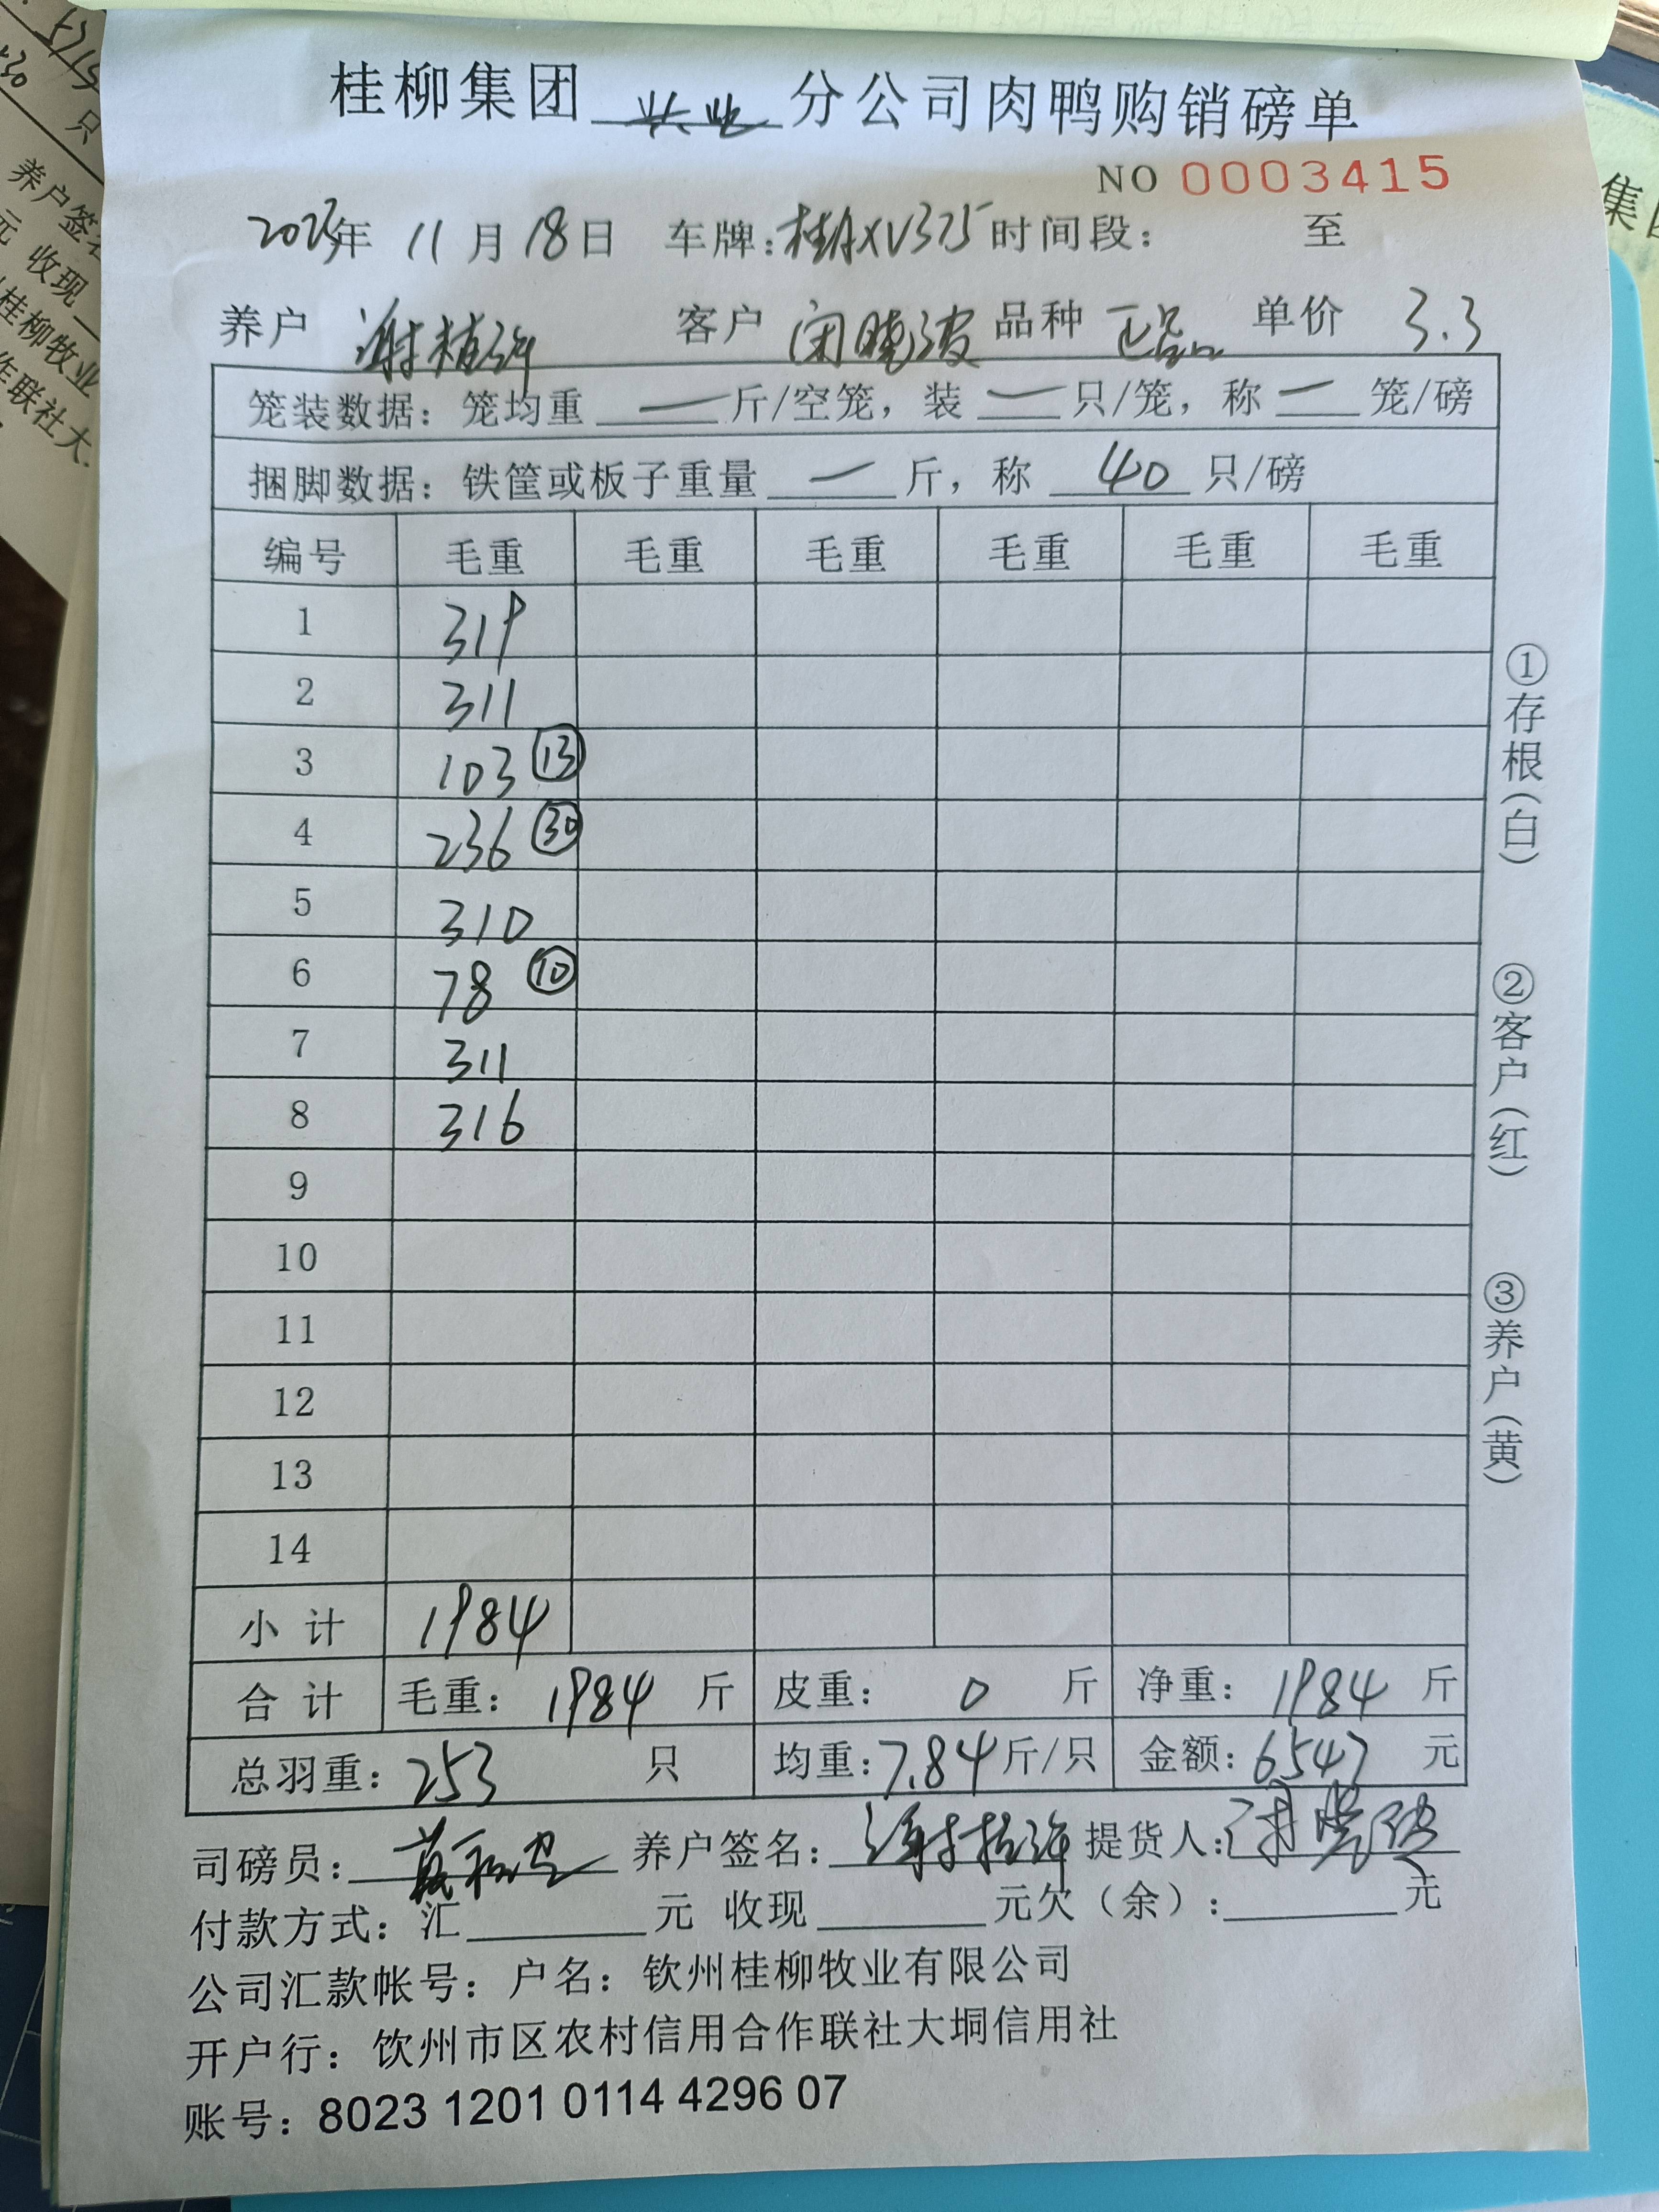 桂柳集团 兴业 分公司肉鸭购销磅单
NO 0003415
2023年 11月18日 车牌:桂AXV375 时间段: 至
养户 谢植许 客户 闭晓波 品种 正品 单价 3.3
笼装数据: 笼均重 — 斤/空笼, 装 — 只/笼, 称 — 笼/磅
捆脚数据: 铁筐或板子重量 — 斤, 称 40 只/磅
编号 毛重 毛重 毛重 毛重 毛重 毛重
1 319
2 311
3 103 ⑬
4 236 ㉚
5 310
6 78 ⑩
7 311
8 316
9
10
11
12
13
14
小计 1984
合计 毛重: 1984 斤 皮重: 0 斤 净重: 1984 斤
总羽重: 253 只 均重: 7.84 斤/只 金额: 6547 元
司磅员: 养户签名: 提货人:
付款方式: 汇 元 收现 元欠(余): 元
公司汇款帐号: 户名: 钦州桂柳牧业有限公司
开户行: 钦州市区农村信用合作联社大垌信用社
账号: 8023 1201 0114 4296 07
①存根(白) ②客户(红) ③养户(黄)